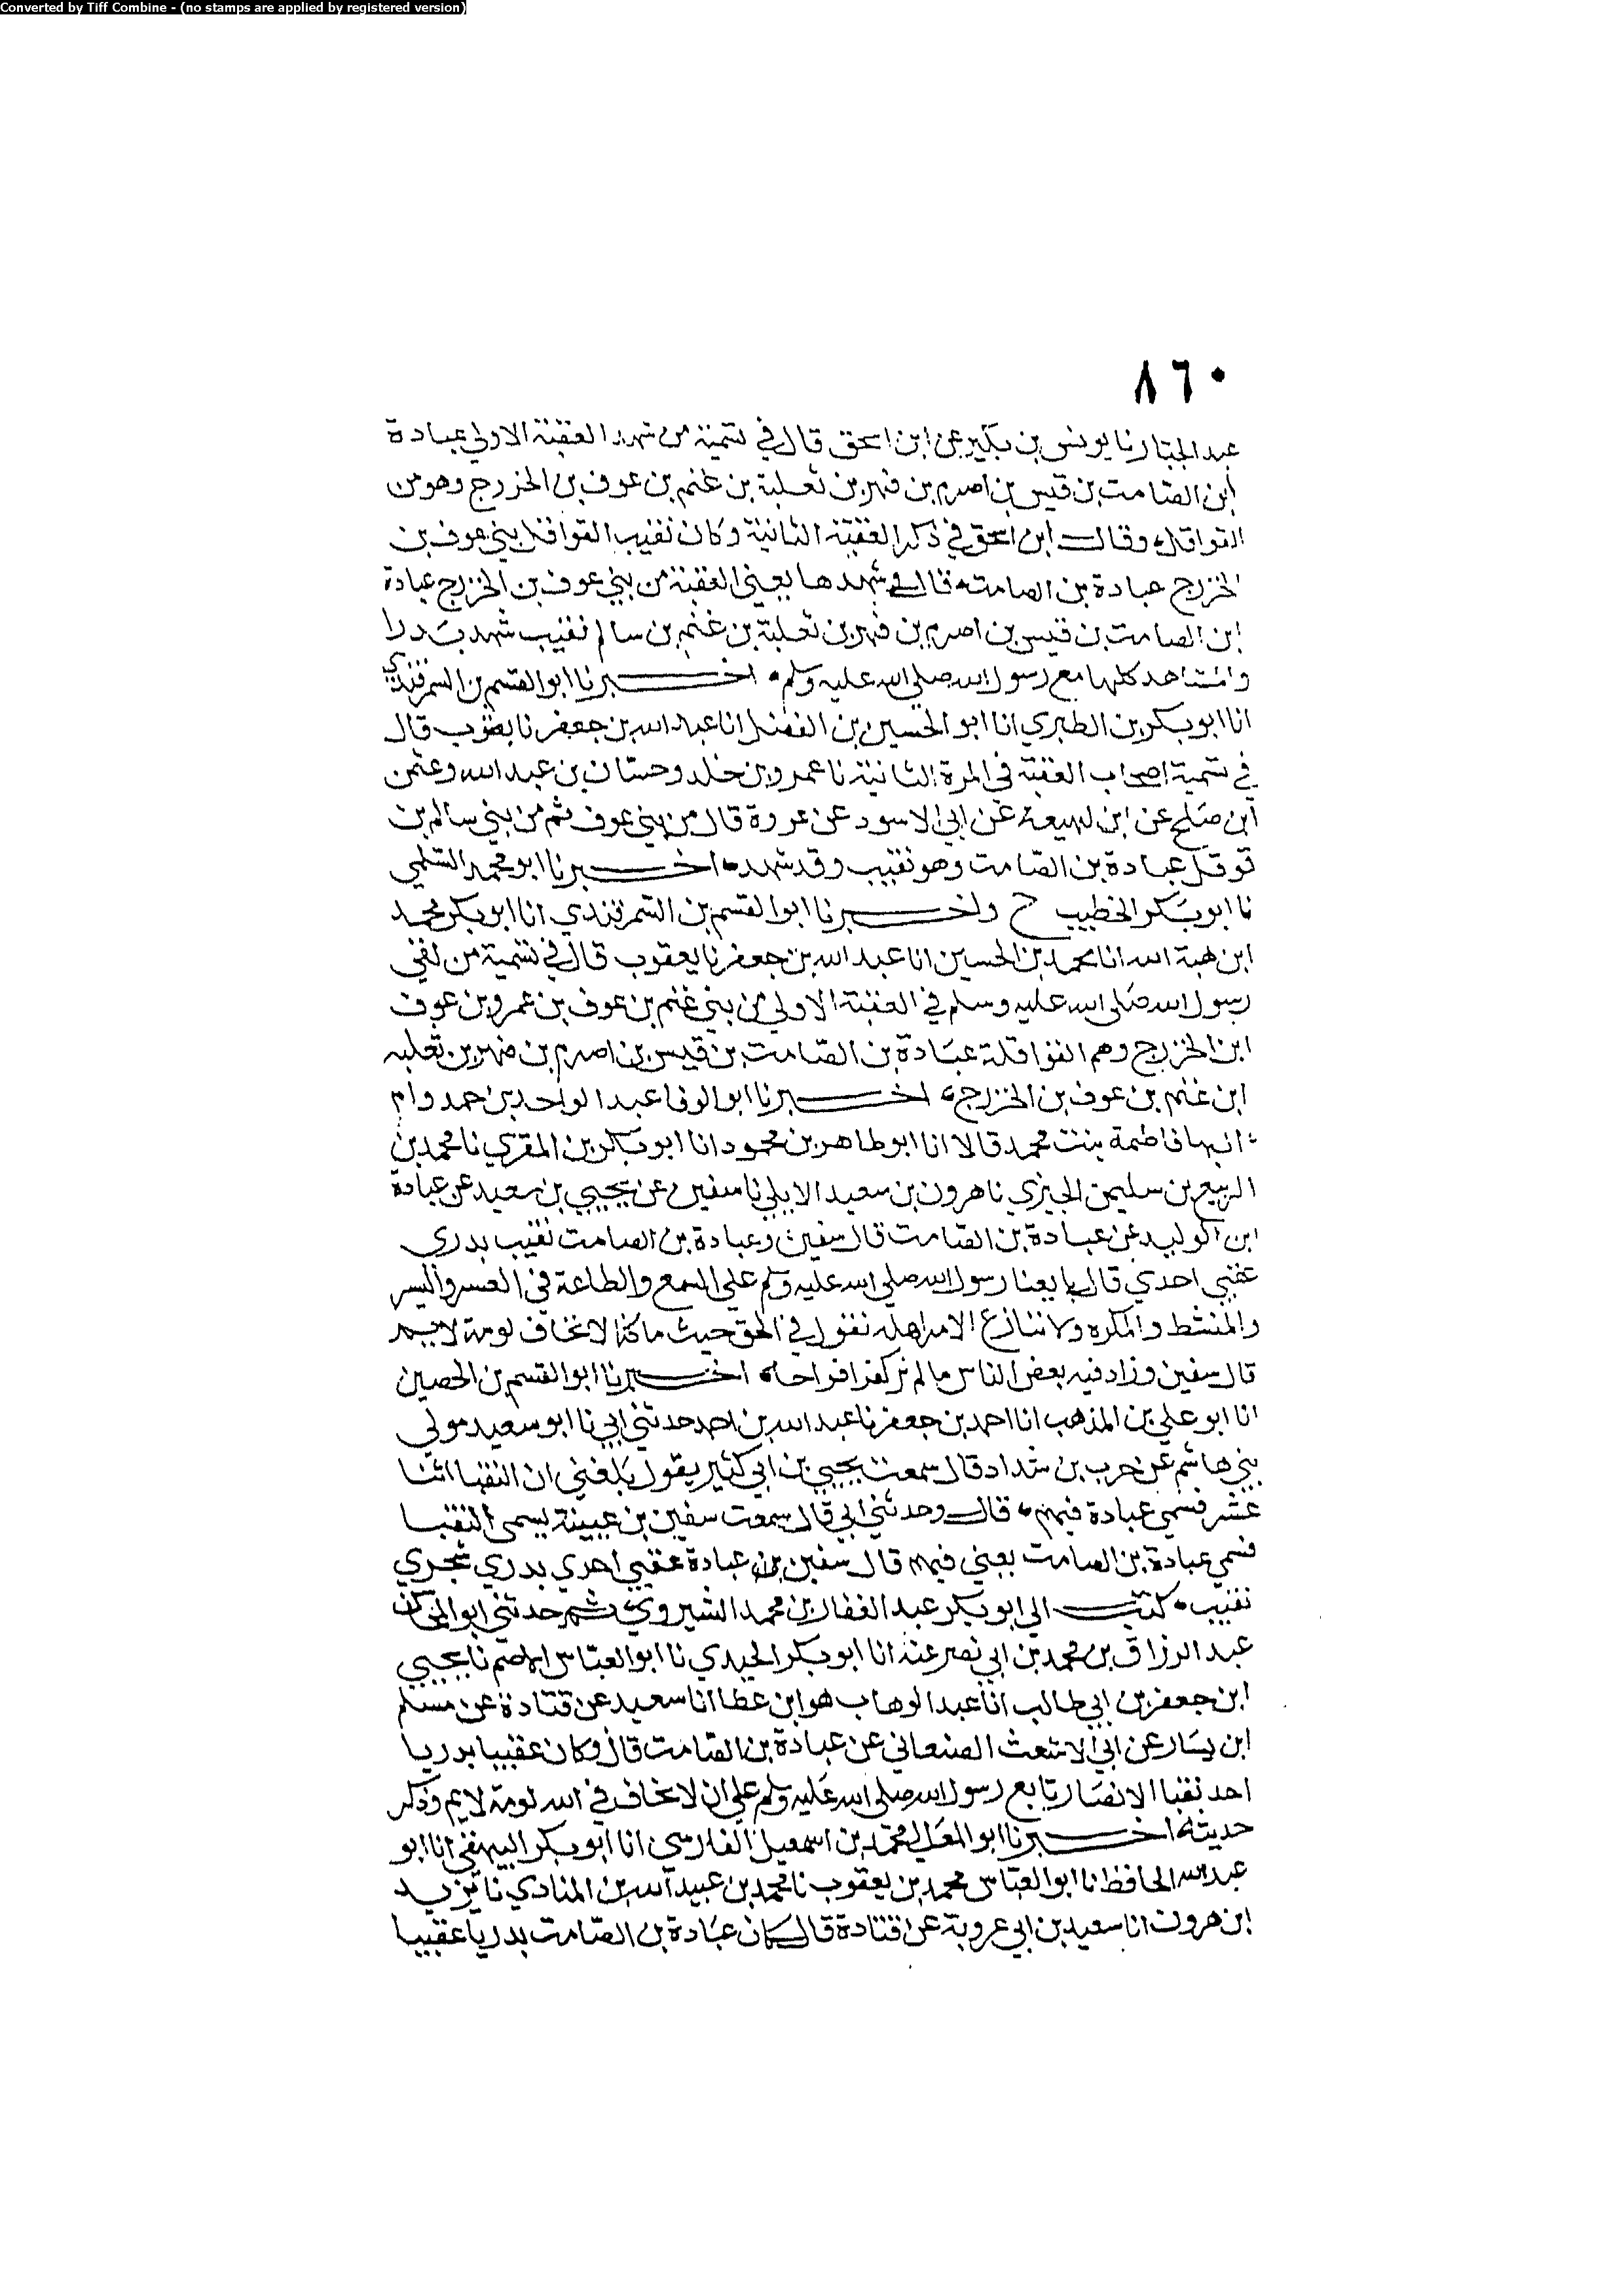 Converted by Tiff Combine - (no stamps are applied by registered version)
٨٦٠
عبد الجبار نا يونس بن بكير عن ابن اسحق قال في تسمية من شهد العقبة الاولي عبادة
ابن الصامت بن قيس بن اصرم بن فهر بن ثعلبة بن غنم بن عوف بن الخزرج وهو من
القواقل وقال ابن اسحق في ذكر العقبة الثانية وكان نقيب القواقل بني عوف بن
الخزرج عبادة بن الصامت قال في شهدها يعني العقبة من بني عوف بن الخزرج عبادة
ابن الصامت بن قيس بن اصرم بن فهر بن ثعلبة بن غنم بن سالم نقيب شهد بدرا
والمشاهد كلها مع رسول الله صلي الله عليه وسلم اخبرنا ابو القسم بن السمرقندي
انا ابو بكر بن الطبري انا ابو الحسين بن الفضل انا عبد الله بن جعفر نا يعقوب قال
في تسمية اصحاب العقبة في المرة الثانية نا عمرو بن خلد وحسان بن عبد الله وعثمن
ابن صلح عن ابن لهيعة عن ابي الاسود عن عروة قال من بني عوف ثم من بني سالم بن
قوقل عبادة بن الصامت وهو نقيب وقد شهد اخبرنا ابو محمد السلمي
نا ابو بكر الخطيب ح واخبرنا ابو القسم بن السمرقندي انا ابو بكر محمد
ابن هبة الله انا محمد بن الحسين انا عبد الله بن جعفر نا يعقوب قال في تسمية من لقي
رسول الله صلى الله عليه وسلم في العقبة الاولي من بني غنم بن عوف بن عمرو بن عوف
ابن الخزرج وهم القواقلة عبادة بن الصامت بن قيس بن اصرم بن فهر بن ثعلبه
ابن غنم بن عوف بن الخزرج اخبرنا ابو الوفا عبد الواحد بن حمد وام
البها فاطمة بنت محمد قالا انا ابو طاهر بن محمود انا ابو بكر بن المقري نا محمد بن
الربيع بن سليمن الجيزي نا هرون بن سعيد الايلي نا سفين عن يحيي بن سعيد عن عبادة
ابن الوليد عن عبادة بن الصامت قال سفين وعبادة بن الصامت نقيب بدري
عقبي احدي قال بايعنا رسول الله صلي الله عليه وسلم علي السمع والطاعة في العسر واليسر
والمنشط والمكره ولا ننازع الامر اهله نقول في الحق حيث ما كنا لا نخاف لومة لايم
قال سفين وزاد فيه بعض الناس ما لم تر كفرا بواحا اخبرنا ابو القسم بن الحصين
انا ابو علي بن المذهب انا احمد بن جعفر نا عبد الله بن احمد حدثني ابي نا ابو سعيد مولى
بني هاشم عن حرب بن شداد قال سمعت يحيي بن ابي كثير يقول بلغني ان النقبا اثنا
عشر فسمي عبادة فيهم قال وحدثني ابي قال سمعت سفين بن عيينة يسمى النقبا
فسمي عبادة بن الصامت يعني فيهم قال سفين بن عبادة عقبي احدي بدري شجري
نقيب كتب الي ابو بكر عبد الغفار بن محمد الشيروي ثم حدثني ابو المحاسن
عبد الرزاق بن محمد بن ابي نصر عنه انا ابو بكر الحيري نا ابو العباس الاصم نا يحيي
ابن جعفر بن ابي طالب انا عبد الوهاب هو ابن عطا انا سعيد عن قتادة عن مسلم
ابن يسار عن ابي الاشعث الصنعاني عن عبادة بن الصامت قال وكان عقبيا بدريا
احد نقبا الانصار بايع رسول الله صلى الله عليه وسلم علي ان لا يخاف في الله لومة لايم وذكر
حديثه اخبرنا ابو المعالي محمد بن اسمعيل الفارسي انا ابو بكر البيهقي انا ابو
عبد الله الحافظ نا ابو العباس محمد بن يعقوب نا محمد بن عبيد الله بن المنادي نا يزيد
ابن هرون انا سعيد بن ابي عروبة عن قتادة قال كان عبادة بن الصامت بدريا عقبيا